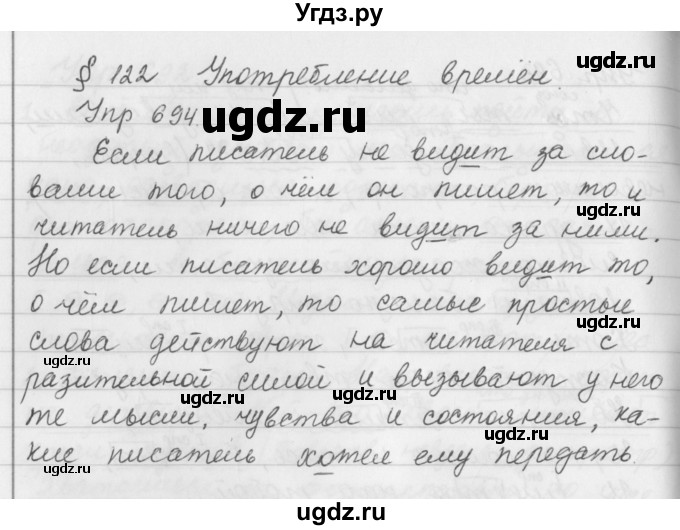 Угдз.ру
§ 122 Употребление времён.
Упр 694
ugdz.ru
Если писатель не видит за сло-
вами того, о чём он пишет, то и
ugdz.ru
читатель ничего не видит за ними.
ugdz.ru
Но если писатель хорошо видит то,
о чём пишет, то самые простые
слова действуют на читателя с
ugdz.ru
ugdz.ru
разительной силой и вызывают у него
те мысли, чувства и состояния, ка-
ugdz.ru
кие писатель хотел ему передать.
ugdz.ru